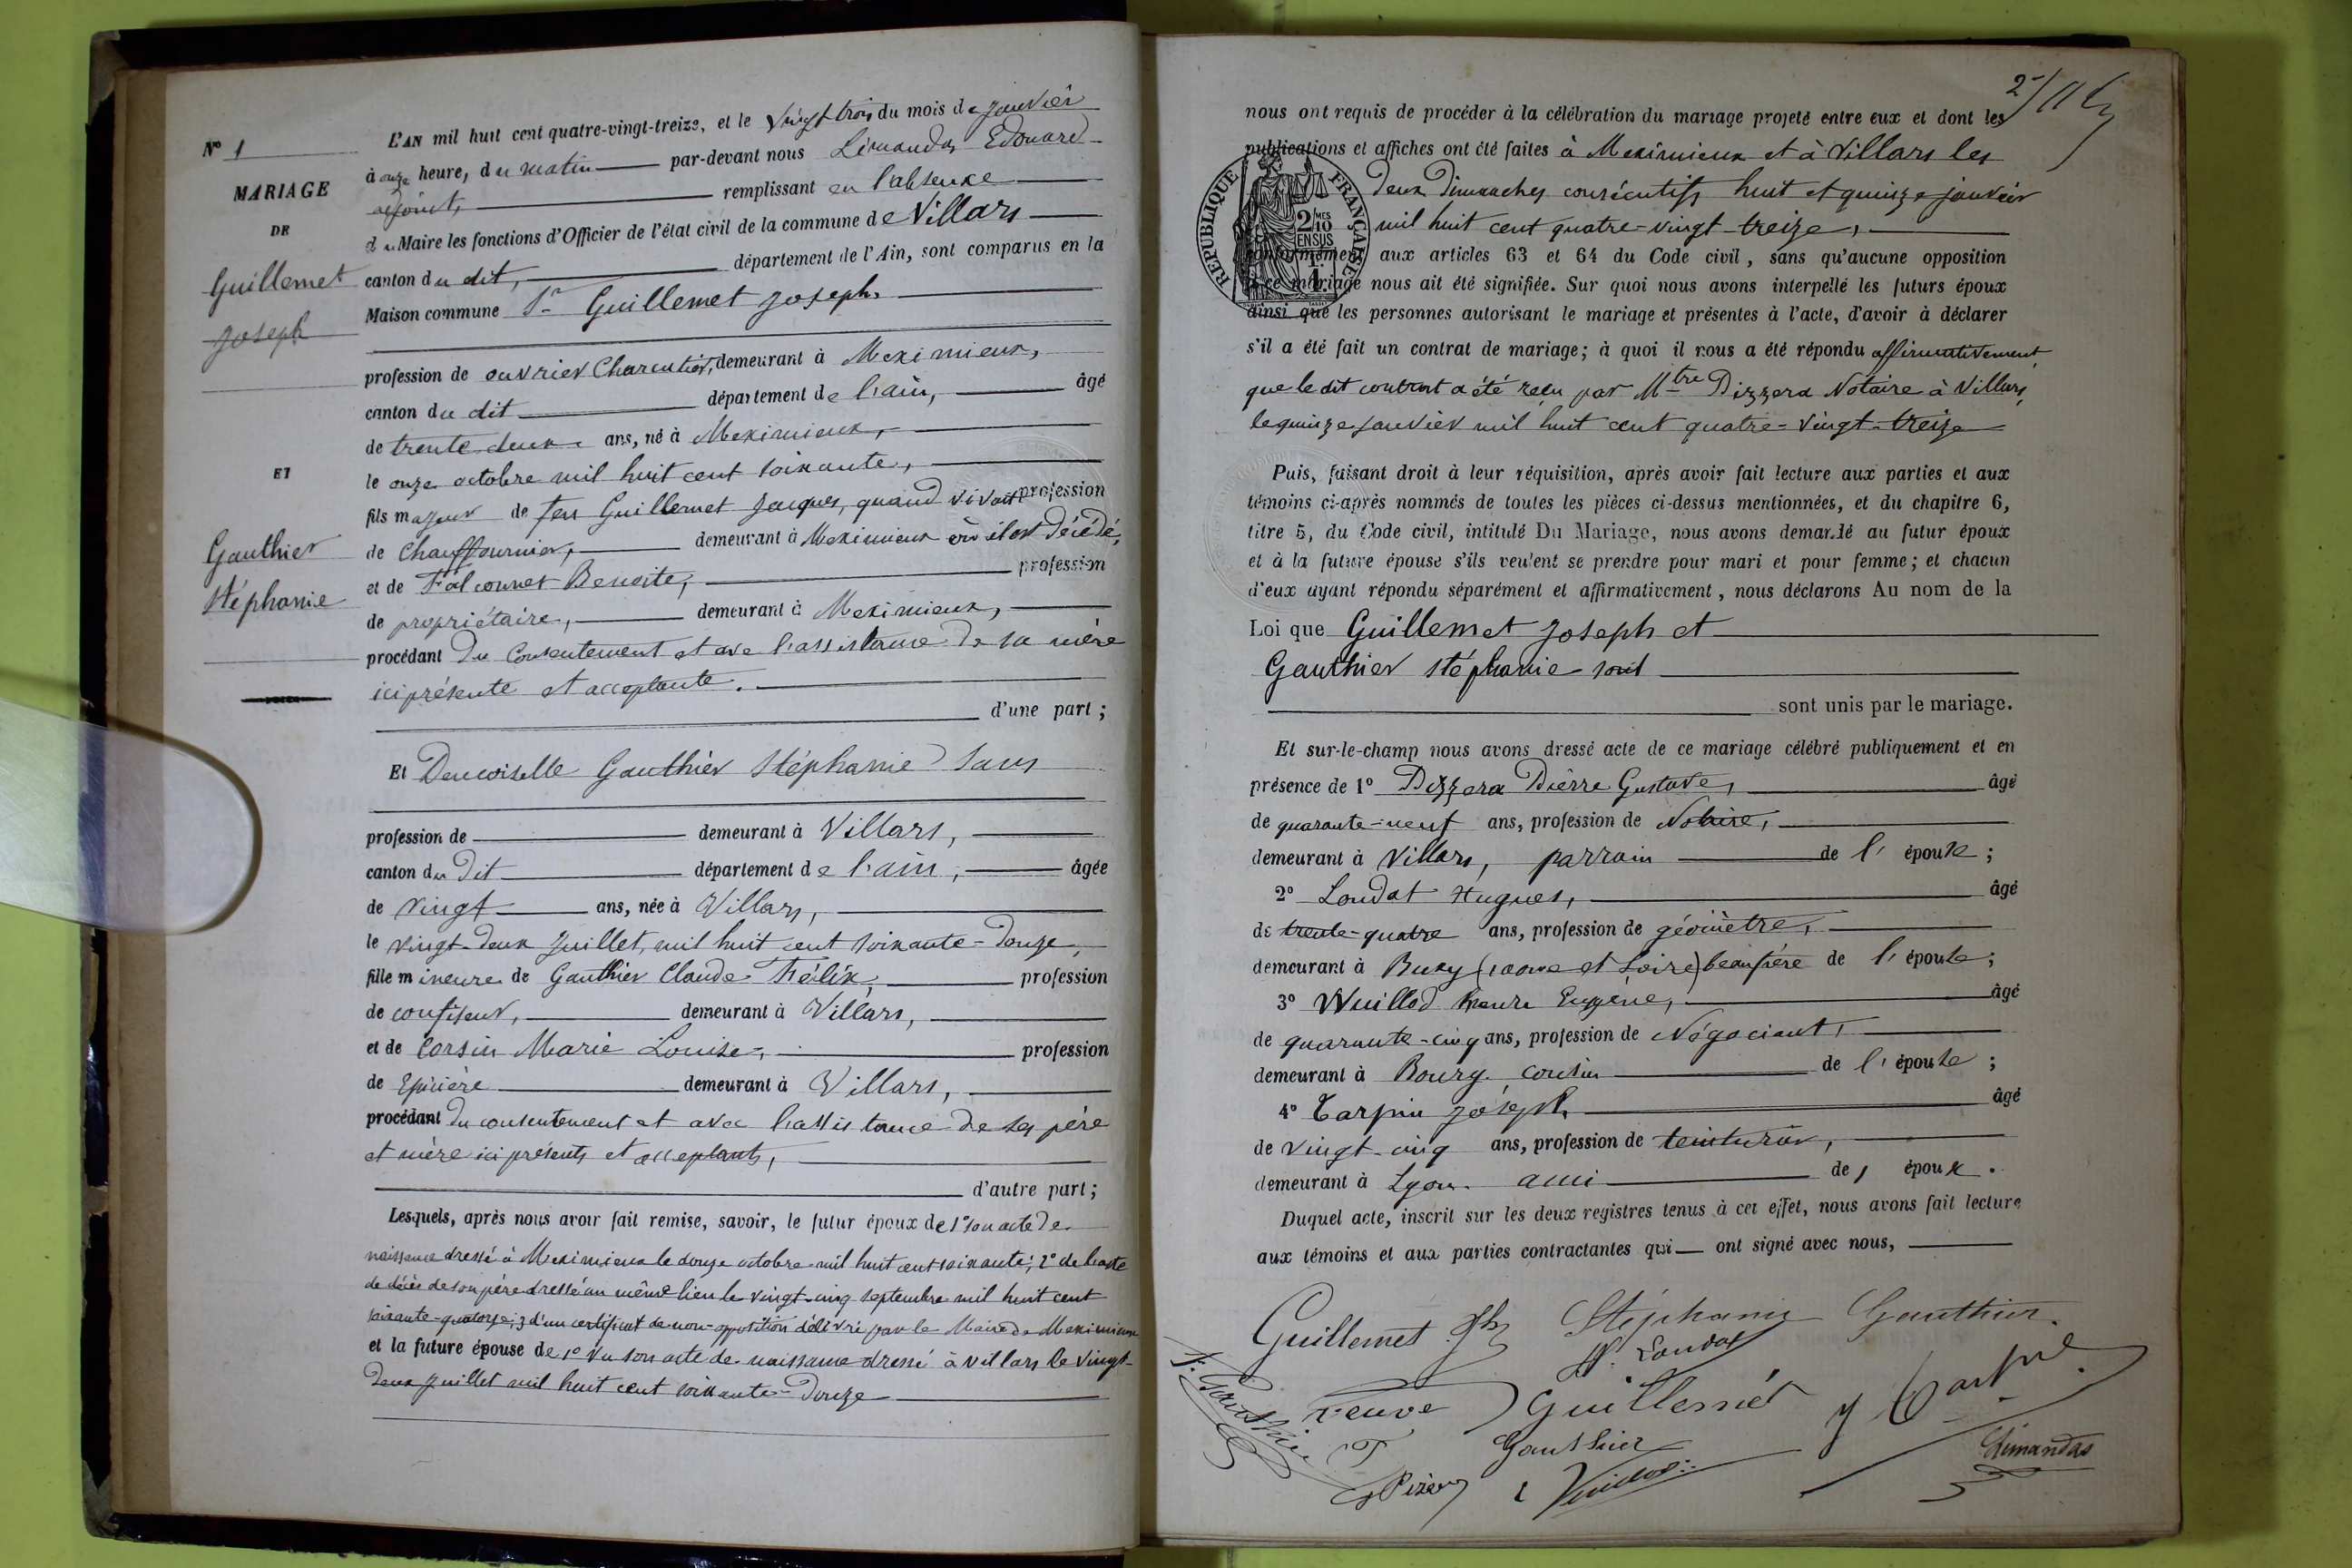 N° 1
MARIAGE
DE
Guillemet
Joseph
ET
Gauthier
Stéphanie
L'AN mil huit cent quatre-vingt-treize, et le vingt trois du mois de janvier
à onze heure, du matin par-devant nous Limandas Edouard
adjoint, remplissant en l'absence
du Maire les fonctions d'Officier de l'état civil de la commune de Villars
canton du dit, département de l'Ain, sont comparus en la
Maison commune Sr Guillemet Joseph,
profession de ouvrier Charcutier, demeurant à Meximieux,
canton du dit département de l'ain, âgé
de trente deux ans, né à Meximieux,
le onze octobre mil huit cent soixante,
fils majeur de feu Guillemet Jacques, quand vivait profession
de Chauffournier, demeurant à Meximieux où il est décédé,
et de Falconnet Benoite, profession
de propriétaire, demeurant à Meximieux,
procédant du Consentement et avec l'assistance de sa mère
ici présente et acceptante.
d'une part ;
Et Demoiselle Gauthier Stéphanie sans
profession de demeurant à Villars,
canton du Dit département de l'ain, âgée
de vingt ans, née à Villars,
le vingt-deux juillet, mil huit cent soixante-douze,
fille mineure de Gauthier Claude Félix, profession
de confiseur, demeurant à Villars,
et de Corsin Marie Louise, profession
de Epicière demeurant à Villars,
procédant du consentement et avec l'assistance de ses père
et mère ici présents et acceptants,
d'autre part ;
Lesquels, après nous avoir fait remise, savoir, le futur époux de 1° son acte de
naissance dressé à Meximieux le douze octobre mil huit cent soixante ; 2° de l'acte
de décès de son père dressé au même lieu le vingt-cinq septembre mil huit cent
soixante-quatorze ; 3 d'un certificat de non-opposition délivré par le Maire de Meximieux
et la future épouse de 1° Vu son acte de naissance dressé à Villars le vingt-
deux juillet mil huit cent soixante-douze
2
nous ont requis de procéder à la célébration du mariage projeté entre eux et dont les
publications et affiches ont été faites à Meximieux et à Villars les
deux Dimanches consécutifs huit et quinze janvier
mil huit cent quatre-vingt-treize,
conformément aux articles 63 et 64 du Code civil, sans qu'aucune opposition
à ce mariage nous ait été signifiée. Sur quoi nous avons interpellé les futurs époux
ainsi que les personnes autorisant le mariage et présentes à l'acte, d'avoir à déclarer
s'il a été fait un contrat de mariage ; à quoi il nous a été répondu affirmativement
que le dit contrat a été reçu par Mtre Pizzera Notaire à Villars,
le quinze janvier mil huit cent quatre-vingt-treize
RÉPUBLIQUE FRANÇAISE
2/10
EN SUS
Puis, faisant droit à leur réquisition, après avoir fait lecture aux parties et aux
témoins ci-après nommés de toutes les pièces ci-dessus mentionnées, et du chapitre 6,
titre 5, du Code civil, intitulé Du Mariage, nous avons demandé au futur époux
et à la future épouse s'ils veulent se prendre pour mari et pour femme ; et chacun
d'eux ayant répondu séparément et affirmativement, nous déclarons Au nom de la
Loi que Guillemet Joseph et
Gauthier Stéphanie sont
sont unis par le mariage.
Et sur-le-champ nous avons dressé acte de ce mariage célébré publiquement et en
présence de 1° Pizzera Pierre Gustave, âgé
de quarante-neuf ans, profession de Notaire,
demeurant à Villars, parrain de l'épouse ;
2° Loudot Hugues, âgé
de trente-quatre ans, profession de géomètre,
demeurant à Buxy (saone et Loire) beaufrère de l'épouse ;
3° Wuillod Eugène, âgé
de quarante-cinq ans, profession de Négociant,
demeurant à Bourg. cousin de l'épouse ;
4° Carpin Joseph, âgé
de vingt-cinq ans, profession de teinturier,
demeurant à Lyon. ami de l époux.
Duquel acte, inscrit sur les deux registres tenus à cet effet, nous avons fait lecture
aux témoins et aux parties contractantes qui ont signé avec nous,
Guillemet Jh Stéphanie Gauthier.
H. Loudot
Veuve Guillemet
Gauthier
Limandas